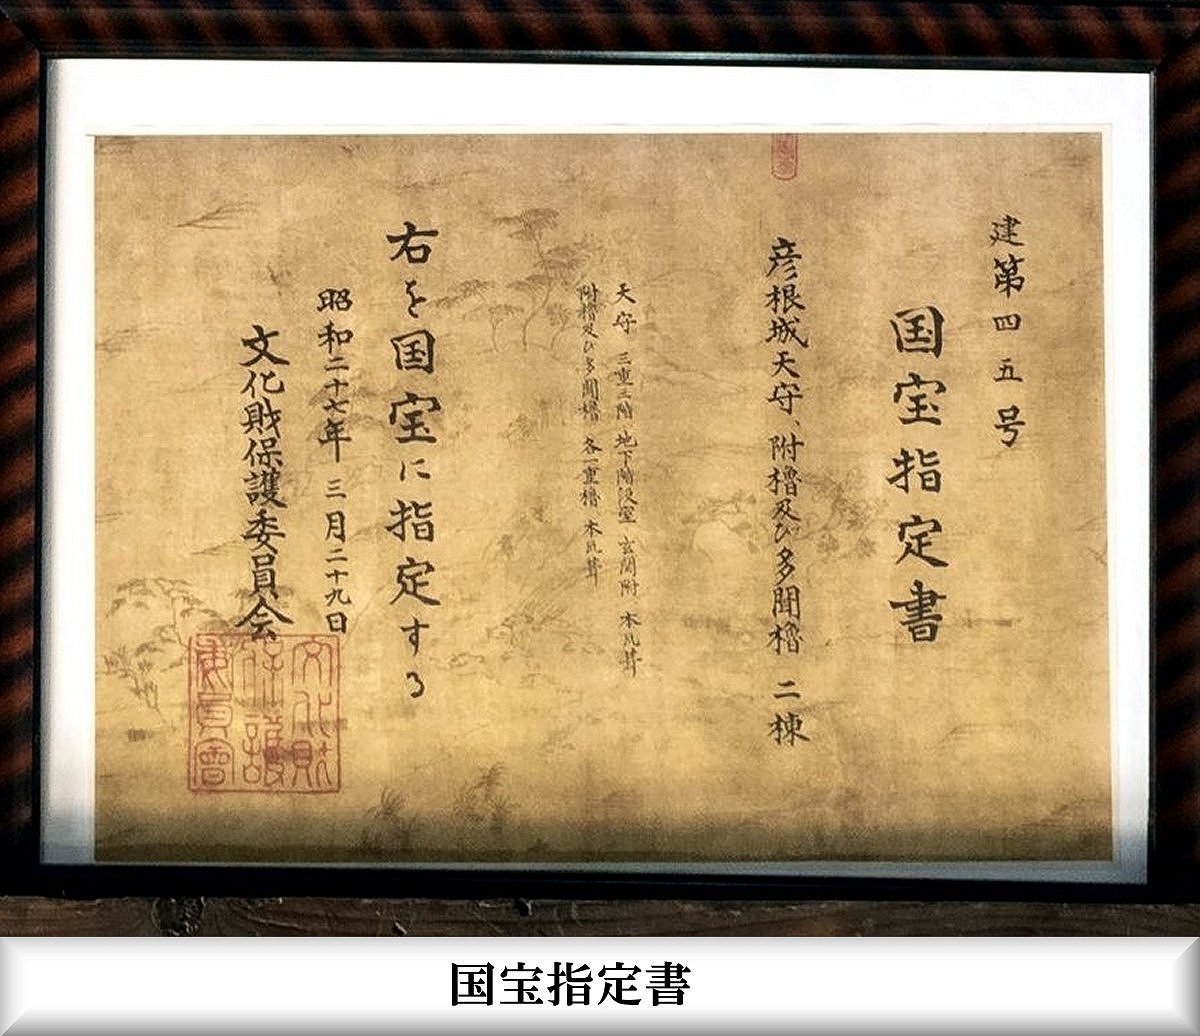 建第四五号
国宝指定書
彦根城天守、附櫓及び多聞櫓 二棟
天守 三重三階 地下階段室 玄関附 本瓦葺
附櫓及び多聞櫓 各一重櫓 本瓦葺
右を国宝に指定する
昭和二十七年 三月二十九日
文化財保護委員会
文化財
保護
委員會
国宝指定書